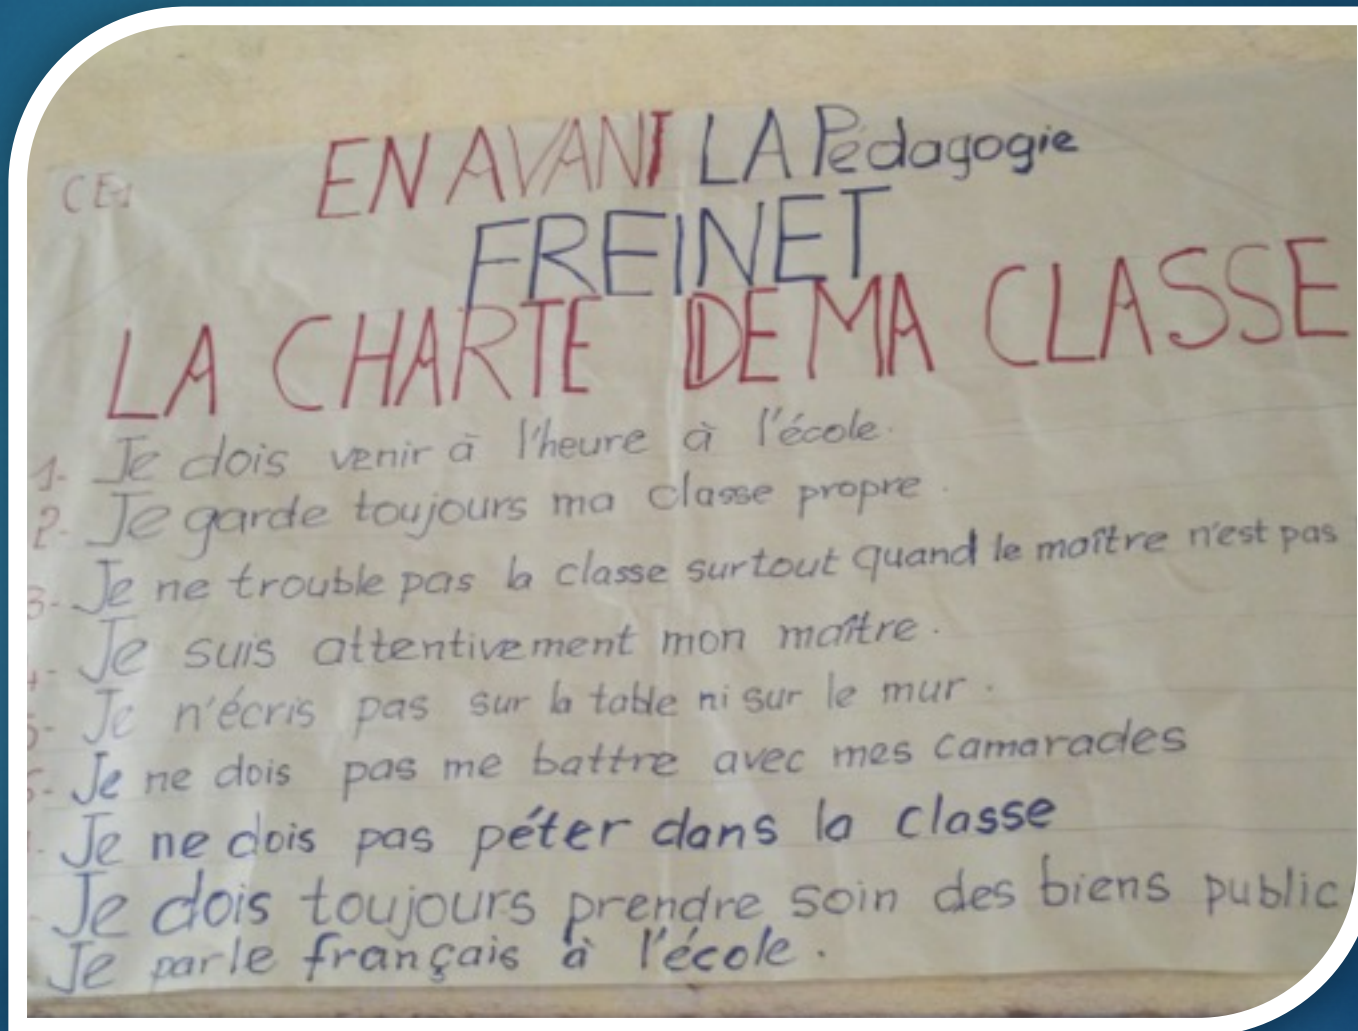 CE1
EN AVANT LA Pédagogie
FREINET
LA CHARTE DE MA CLASSE
1- Je dois venir à l'heure à l'école.
2- Je garde toujours ma classe propre.
3- Je ne trouble pas la classe surtout quand le maître n'est pas
4- Je suis attentivement mon maître.
5- Je n'écris pas sur la table ni sur le mur.
6- Je ne dois pas me battre avec mes camarades
Je ne dois pas péter dans la classe
Je dois toujours prendre soin des biens public
Je parle français à l'école.